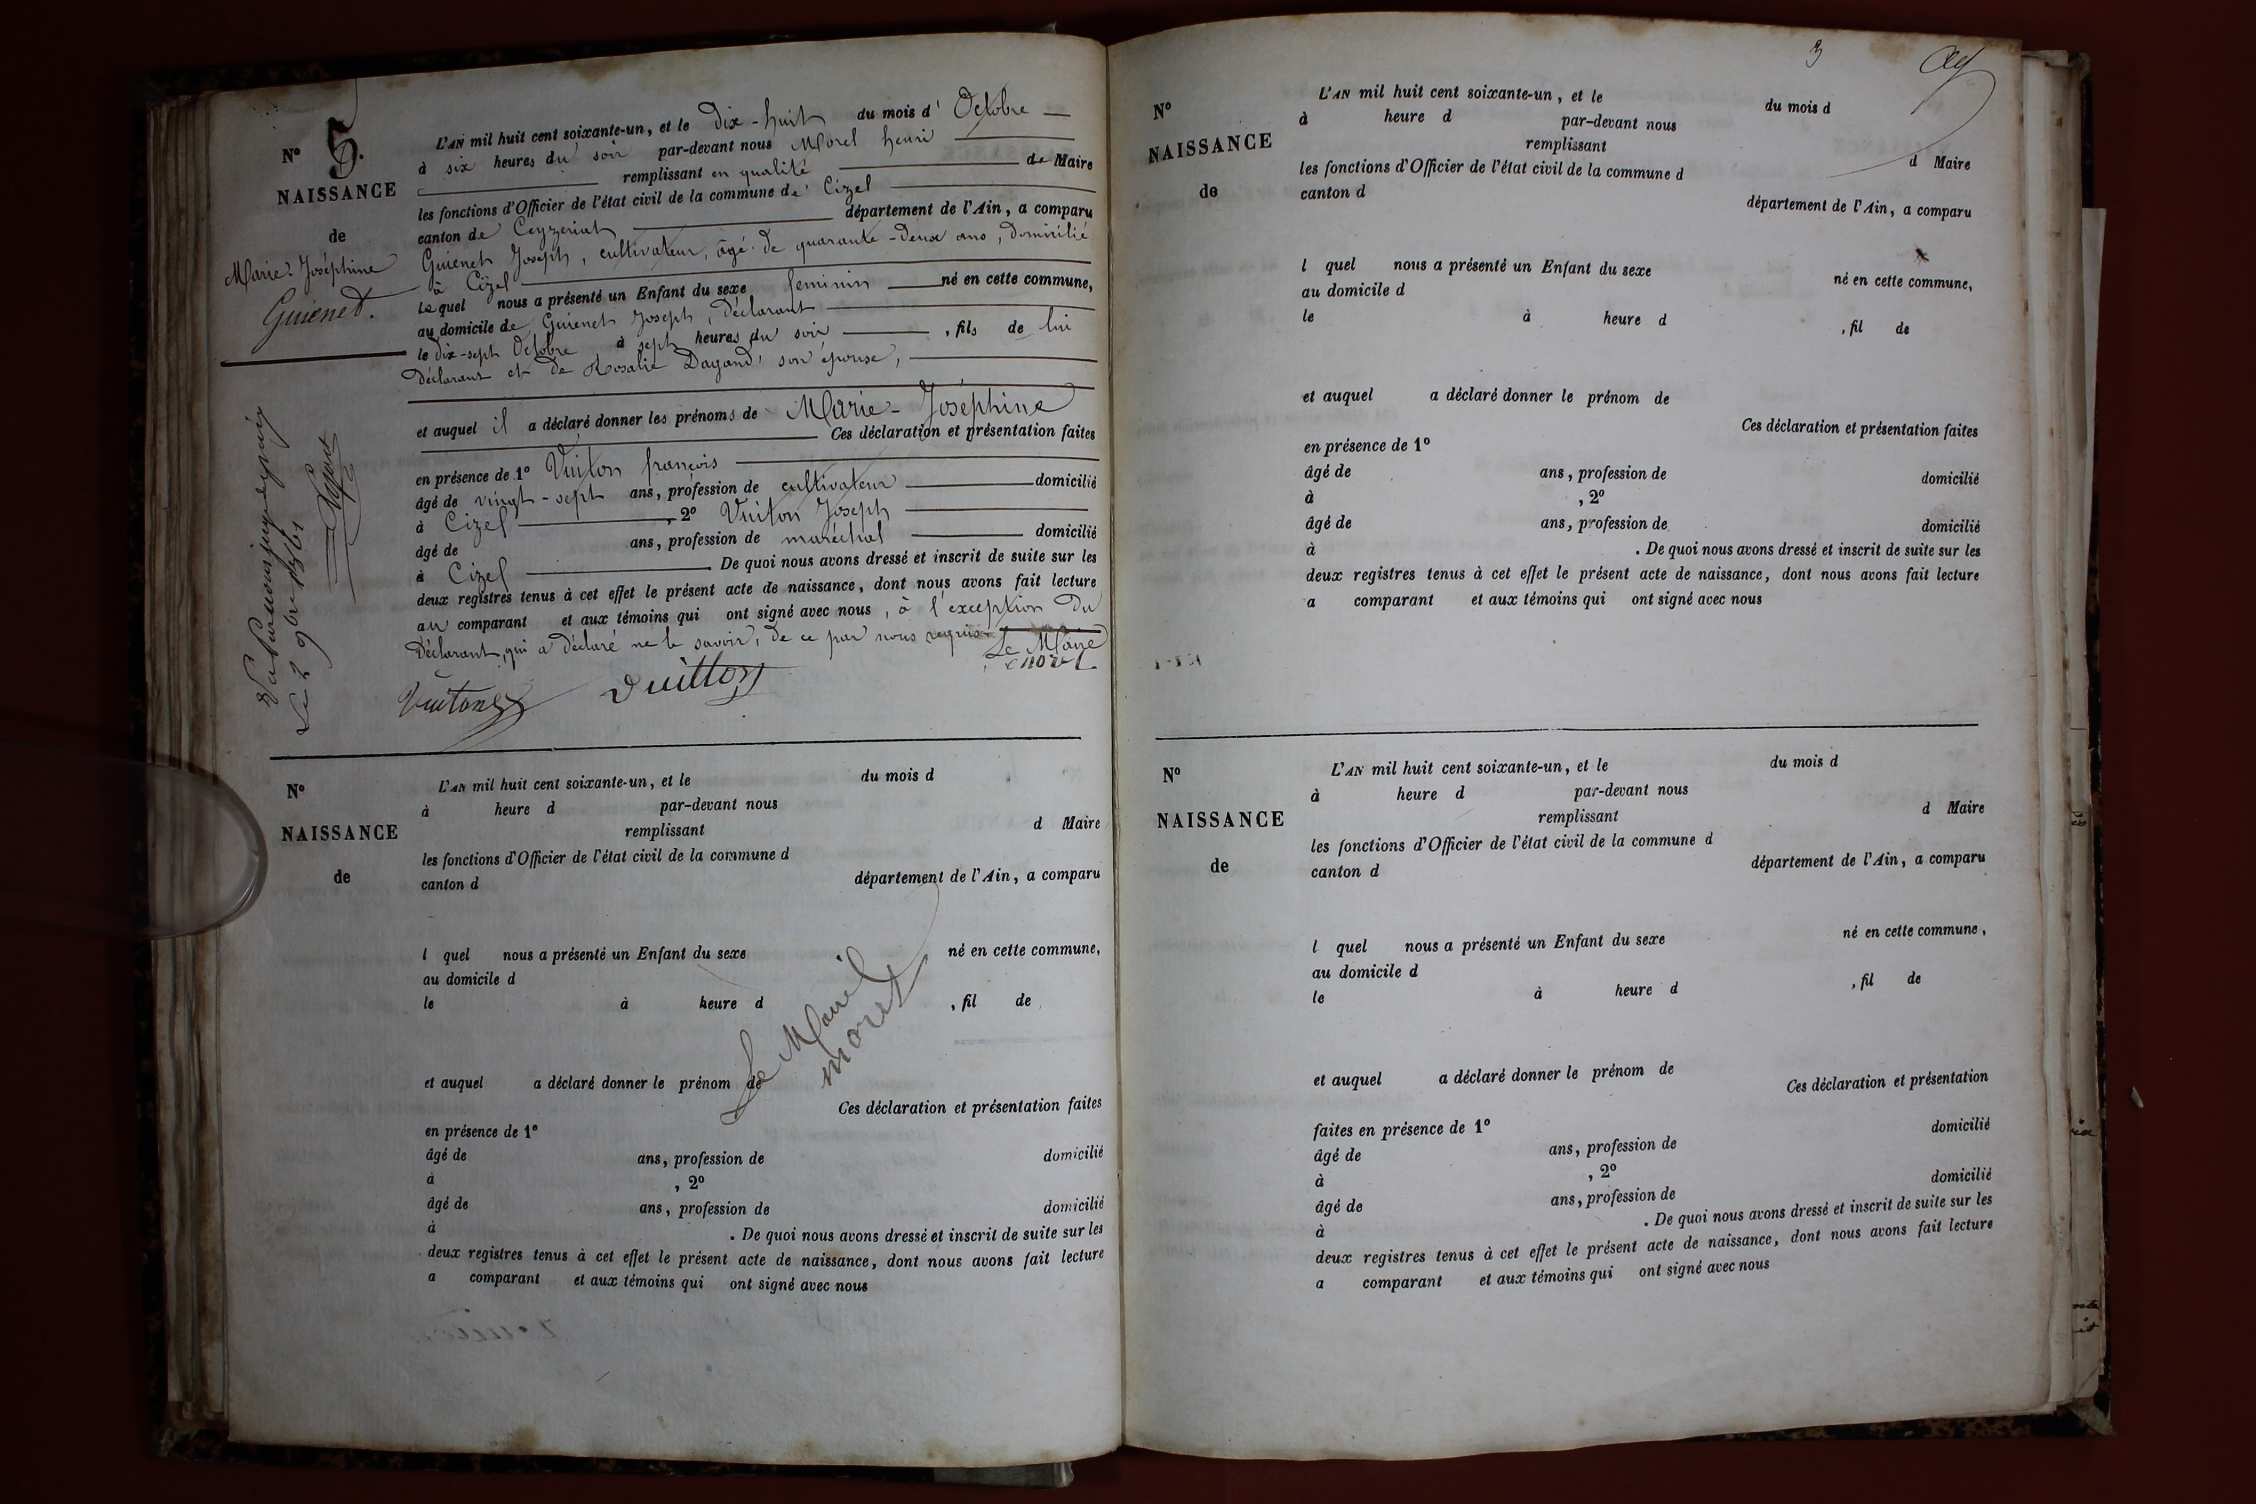 N° 5.
NAISSANCE
de
Marie-Joséphine
Guienet.
L'AN mil huit cent soixante-un, et le Dix-huit du mois d' Octobre
à six heures du soir par-devant nous Morel henri
remplissant en qualité de Maire
les fonctions d'Officier de l'état civil de la commune de Cizel
canton de Ceyzeriat département de l'Ain, a comparu
Guienet Joseph, cultivateur, âgé de quarante-deux ans, domicilié
à Cizel
lequel nous a présenté un Enfant du sexe feminin né en cette commune,
au domicile de Guienet Joseph, Déclarant
le dix-sept Octobre à sept heures du soir, fils de lui
Déclarant et de Rosalie Dagand son épouse,
et auquel il a déclaré donner les prénoms de Marie-Joséphine
Ces déclaration et présentation faites
en présence de 1° Vuiton françois
âgé de vingt-sept ans, profession de cultivateur domicilié
à Cizel, 2° Vuiton Joseph
âgé de ans, profession de maréchal domicilié
à Cizel. De quoi nous avons dressé et inscrit de suite sur les
deux registres tenus à cet effet le présent acte de naissance, dont nous avons fait lecture
au comparant et aux témoins qui ont signé avec nous, à l'exception du
Déclarant, qui a déclaré ne le savoir, de ce par nous requis.
Le Maire
morel
Vuiton Vuitton
N°
NAISSANCE
de
L'AN mil huit cent soixante-un, et le du mois d
à heure d par-devant nous
remplissant d Maire
les fonctions d'Officier de l'état civil de la commune d
canton d département de l'Ain, a comparu
l quel nous a présenté un Enfant du sexe né en cette commune,
au domicile d
le à heure d, fil de
Le Maire
morel
et auquel a déclaré donner le prénom de
Ces déclaration et présentation faites
en présence de 1°
âgé de ans, profession de domicilié
à, 2°
âgé de ans, profession de domicilié
à. De quoi nous avons dressé et inscrit de suite sur les
deux registres tenus à cet effet le présent acte de naissance, dont nous avons fait lecture
a comparant et aux témoins qui ont signé avec nous
3
N°
NAISSANCE
de
L'AN mil huit cent soixante-un, et le du mois d
à heure d par-devant nous
remplissant d Maire
les fonctions d'Officier de l'état civil de la commune d
canton d département de l'Ain, a comparu
l quel nous a présenté un Enfant du sexe né en cette commune,
au domicile d
le à heure d, fil de
et auquel a déclaré donner le prénom de
Ces déclaration et présentation faites
en présence de 1°
âgé de ans, profession de domicilié
à, 2°
âgé de ans, profession de domicilié
à. De quoi nous avons dressé et inscrit de suite sur les
deux registres tenus à cet effet le présent acte de naissance, dont nous avons fait lecture
a comparant et aux témoins qui ont signé avec nous
N°
NAISSANCE
de
L'AN mil huit cent soixante-un, et le du mois d
à heure d par-devant nous
remplissant d Maire
les fonctions d'Officier de l'état civil de la commune d
canton d département de l'Ain, a comparu
l quel nous a présenté un Enfant du sexe né en cette commune,
au domicile d
le à heure d, fil de
et auquel a déclaré donner le prénom de
Ces déclaration et présentation
faites en présence de 1°
âgé de ans, profession de domicilié
à, 2°
âgé de ans, profession de domicilié
à. De quoi nous avons dressé et inscrit de suite sur les
deux registres tenus à cet effet le présent acte de naissance, dont nous avons fait lecture
a comparant et aux témoins qui ont signé avec nous